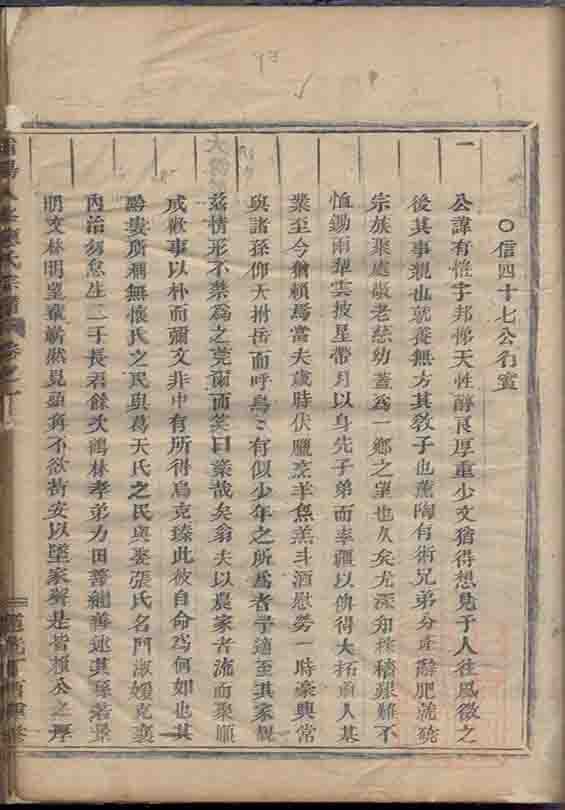 ○信四十七公行實
一
公諱有愷字邦悌天性醇良厚重少文猶得想見于人往風微之
後其事親也就養無方其敎子也薰陶有術兄弟分產辭肥就磽
宗族聚處敬老慈幼蓋爲一鄉之望也久矣尤深知稼穡艱難不
恤鋤雨犁雲披星帶月以身先子弟而率疆以俾得大拓前人基
業至今猶賴焉當夫歲時伏臘烹羊炰羔斗酒慰勞一時豪興常
與諸孫仰天拊缶而呼烏烏有似少年之所爲者予適至其家覩
茲情形不禁爲之莞爾而笑曰樂哉矣翁夫以農家者流而聚順
成歡事以朴而彌文非中有所得烏克臻此彼自命爲何如也其
黔婁所稱無懷氏之民與葛天氏之民與娶張氏名門淑媛克襄
內治勿怠生二子長君餘次鶴林孝弟力田善繼善述其孫若景
明文林明望輩嶄然見頭角不欲苟安以墜家聲是皆賴公之厚
陽 氏宗譜 卷之一
道光 酉重修